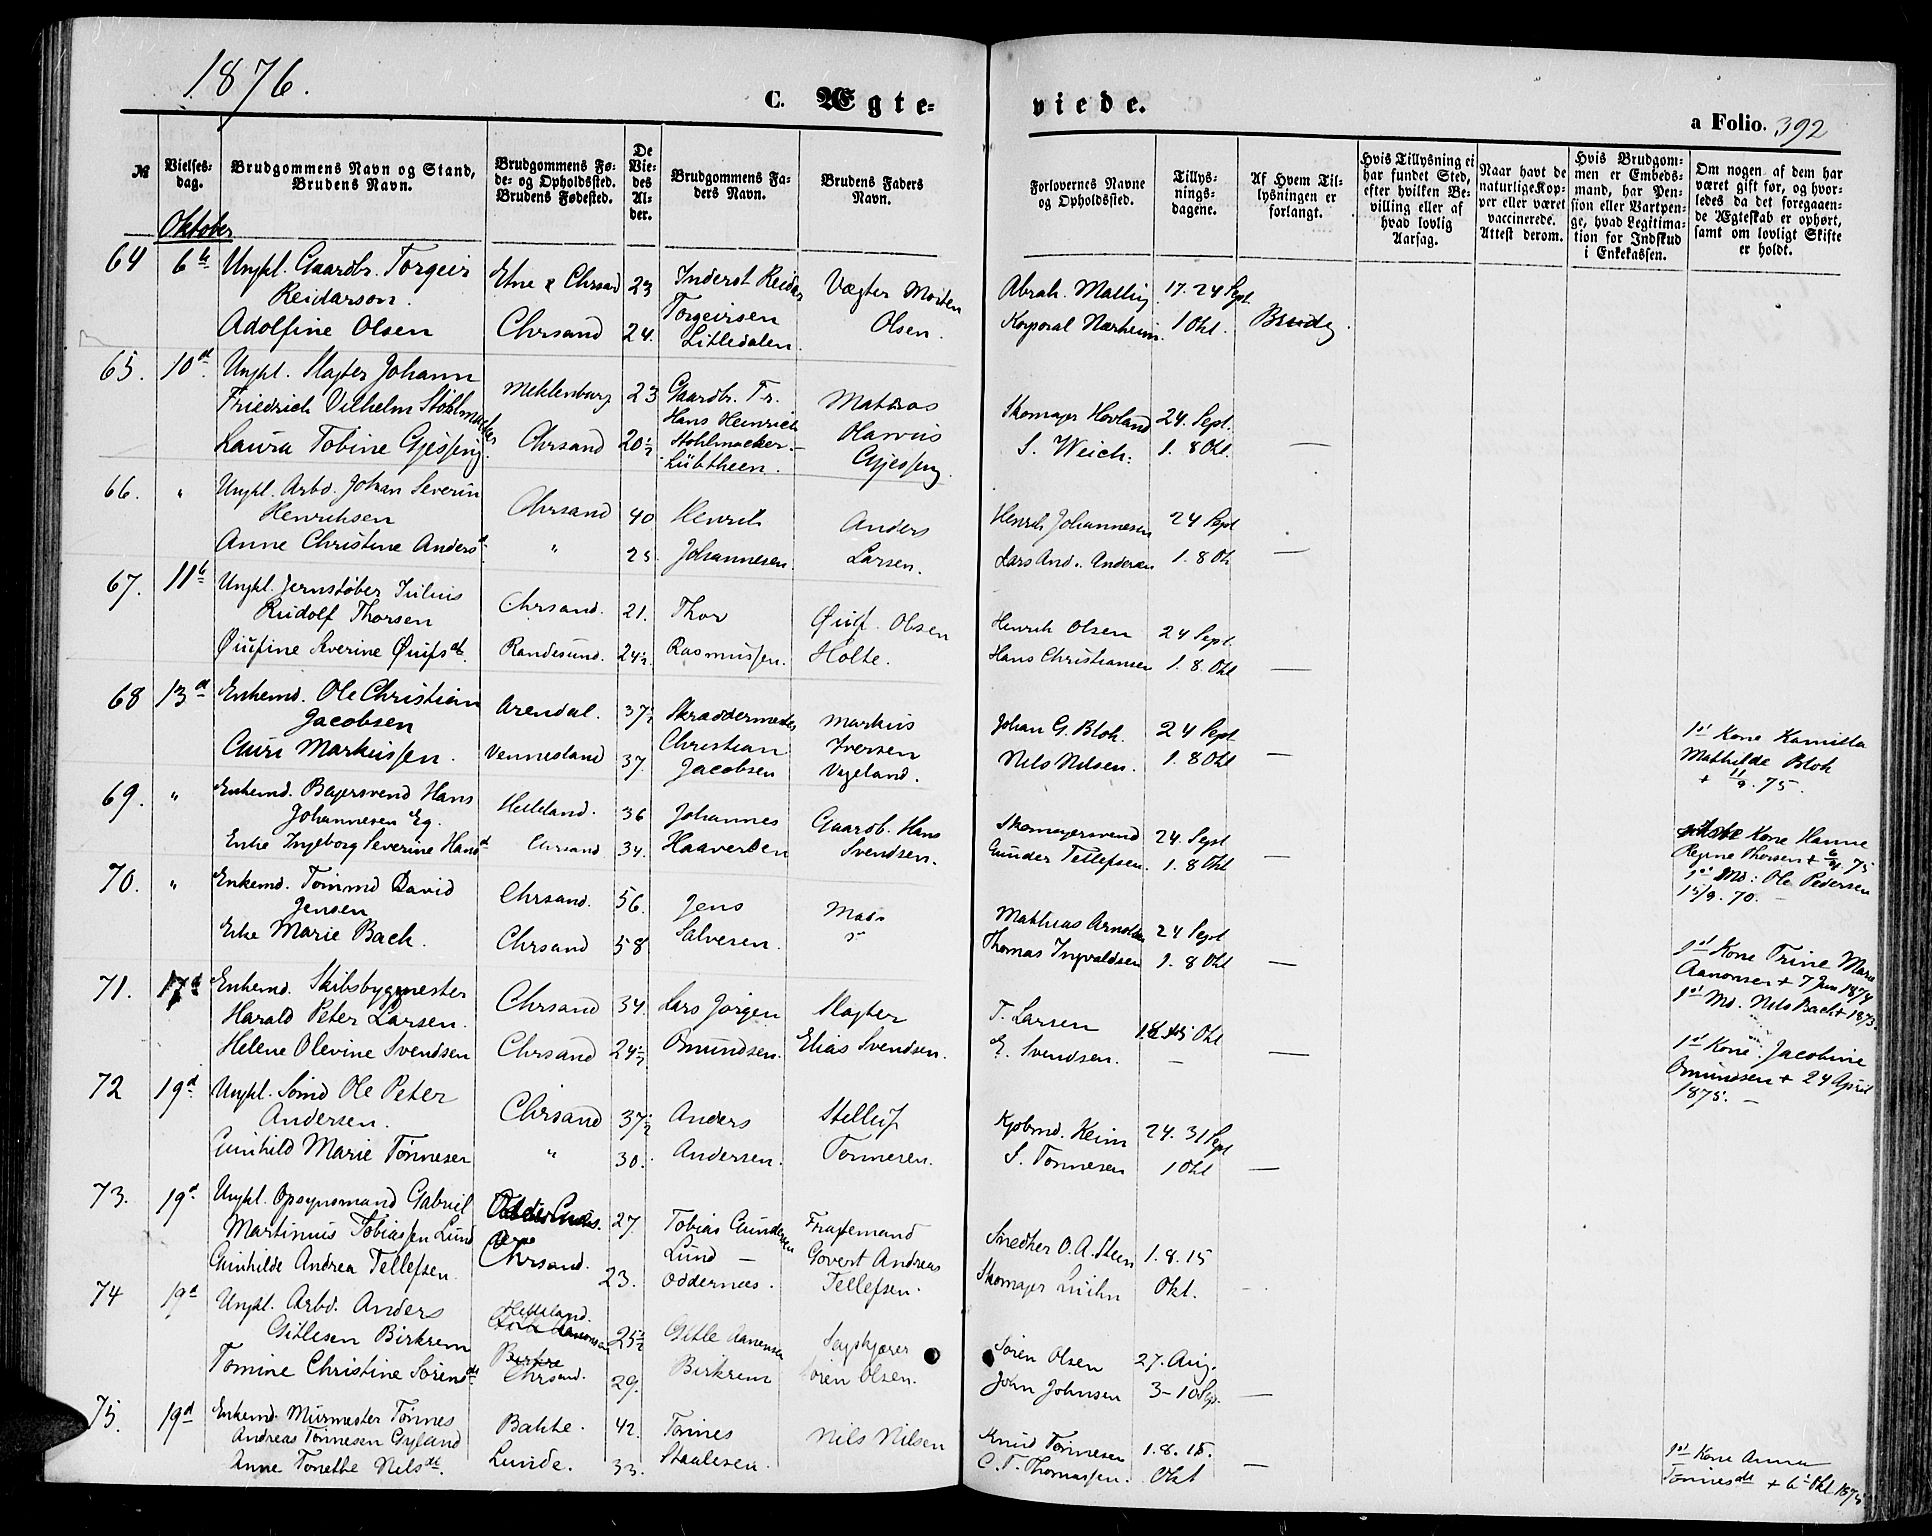 1876.
C. Ægte-
viede.
a Folio. 392
№
Vielses-
dag.
Brudgommens Navn og Stand,
Brudens Navn.
Brudgommens Fø-
de- og Opholdssted.
Brudens Fødested.
De
Vie-
des
Al-
der.
Brudgommens Fa-
ders Navn.
Brudens Faders
Navn.
Forlovernes Navne
og Opholdssted.
Tillys-
nings-
dagene.
Af Hvem Til-
lysningen er
forlangt.
Hvis Tillysning ei
har fundet Sted,
efter hvilken Be-
villing eller af
hvad lovlig
Aarsag.
Naar havt de
naturlige Kop-
per eller været
vaccinerede.
Attest derom.
Hvis Brudgom-
men er Embeds-
mand, har Pen-
sion eller Vartpen-
ge, hvad Legitima-
tion for Indskud
i Enkekassen.
Om nogen af dem har
været gift før, og hvor-
ledes da det foregaaen-
de Ægteskab er ophørt,
samt om lovligt Skifte
er holdt.
Oktober
64 6te Ungkl. Gaardbr. Torgeir
Reidarson.
Etne & Chrsand 23 Inderst Reidar
Torgeirsen
Litledalen.
Vægter Morten
Olsen.
Adolfine Olsen Chrsand 24.
Abrah. Malling 17. 24 Sept
Korporal Nærheim. 1 Okt. Brudg.
65. 10de Ungkl. Slagter Johann
Friedrich Vilhelm Stohlmacker
Meklenburg 23 Gaardbr. Fr.
Hans Heinrich
Stohlmacker
Lübtheen.
Matros
Gjessing
Laura Tobine Gjessing. Chrsand 20½
Skomager Hovland 24. Sept.
S. Weich: 1. 8 Okt. —
66. " Ungkl. Arbd. Johan Severin
Henriksen
Chrsand 40 Henrik
Johannesen
Anders
Larsen.
Anne Christine Andersd. " 25
Henrik Johannesen 24 Sept
Lars And. Andersen 1. 8 Okt —
67. 11te Ungkl. Jernstøber Julius
Rudolf Thorsen
Chrsand. 21. Thor
Rasmussen.
Olsen
Holte.
Randesund. 24½
Henrik Olsen 24 Sept.
Hans Christiansen 1. 8. Okt —
68 13de Enkemd. Ole Christian
Jacobsen
Arendal. 37½ Skræddermester
Christian
Jacobsen
Markus
Iversen
Vigeland.
Guri Markussen. Vennesland 37.
Johan G. Bloh. 24 Sept
Nils Nilsen. 1. 8 Okt —
1ste Kone Kamilla
Mathilde Bloh
+ 11/9. 75.
69. " Enkemd. Bagersvend Hans
Johannesen Eg.
Helleland. 36 Johannes
Haaversen
Gaardb. Hans
Svendsen.
Enke Ingeborg Severine Hansd Chrsand 34.
Skomagersvend 24. Sept
Gunder Tellefsen. 1. 8 Okt —
Kone Hanne
Regine Thorsen + 75
1ste Md: Ole Pedersen
15/9. 70. —
70. " Enkemd. Tømmd David
Jensen
Chrsand. 56. Jens
Salvesen.
Mads
Enke Marie Bach. Chrsand 58
Mathias Arnoldsen 24 Sept
Thomas Ingvaldsen 1. 8 Okt —
1ste Kone Trine Marie
Aanonsen + 7 Jun 1874
1ste Md. Nils Bach + 1873.
71. 17de Enkemd. Skibsbygmester
Harald Peter Larsen.
Chrsand 34. Lars Jørgen
Omundsen.
Slagter
Elias Svendsen.
Helene Olevine Svendsen Chrsand 24½
T. Larsen 1. 8 15 Okt
E. Svendsen. — —
1ste Kone. Jacobine
Omundsen + 24 April
1875. —
72 19de Ungkl. Sømd Ole Peter
Andersen.
Chrsand 37½ Anders
Andersen.
Stelluf
Tønnesen.
Gunhild Marie Tønnesen " 30.
Kjøbmd. Keim 24. 31 Sept
S. Tønnesen 1 Okt —
73. 19de Ungkl. Opsynsmand Gabriel
Martinius Tobiassen Lund
Oddernes. 27. Tobias Gundersen
Lund —
Oddernes.
Fragtemand
Govert Andreas
Tellefsen.
Gunhilde Andrea Tellefsen. Chrsand. 23.
Snedker O. A. Steen 1. 8. 15
Skomager Lühn Okt.
74 19de Ungkl. Arbd. Anders
Gitlesen Birkrem
Helleland. 25½ Gitle Aanensen
Birkrem
Sagskjærer
Søren Olsen.
Tomine Christine Sørensd Chrsand. 29.
Søren Olsen 27. Aug.
John Johnsen 3-10 Sep. —
75. 19de Enkemd. Murmester Tønnes
Andreas Tønnesen Gyland
Bakke. 42. Tønnes
Staalesen.
Nils Nilsen
Anne Tonette Nilsdt Lunde. 33.
Knud Tønnesen 1. 8. 15.
C. T. Thomassen. Okt —
1ste Kone Anna
Tønnesdtt + 6te Okt 1875